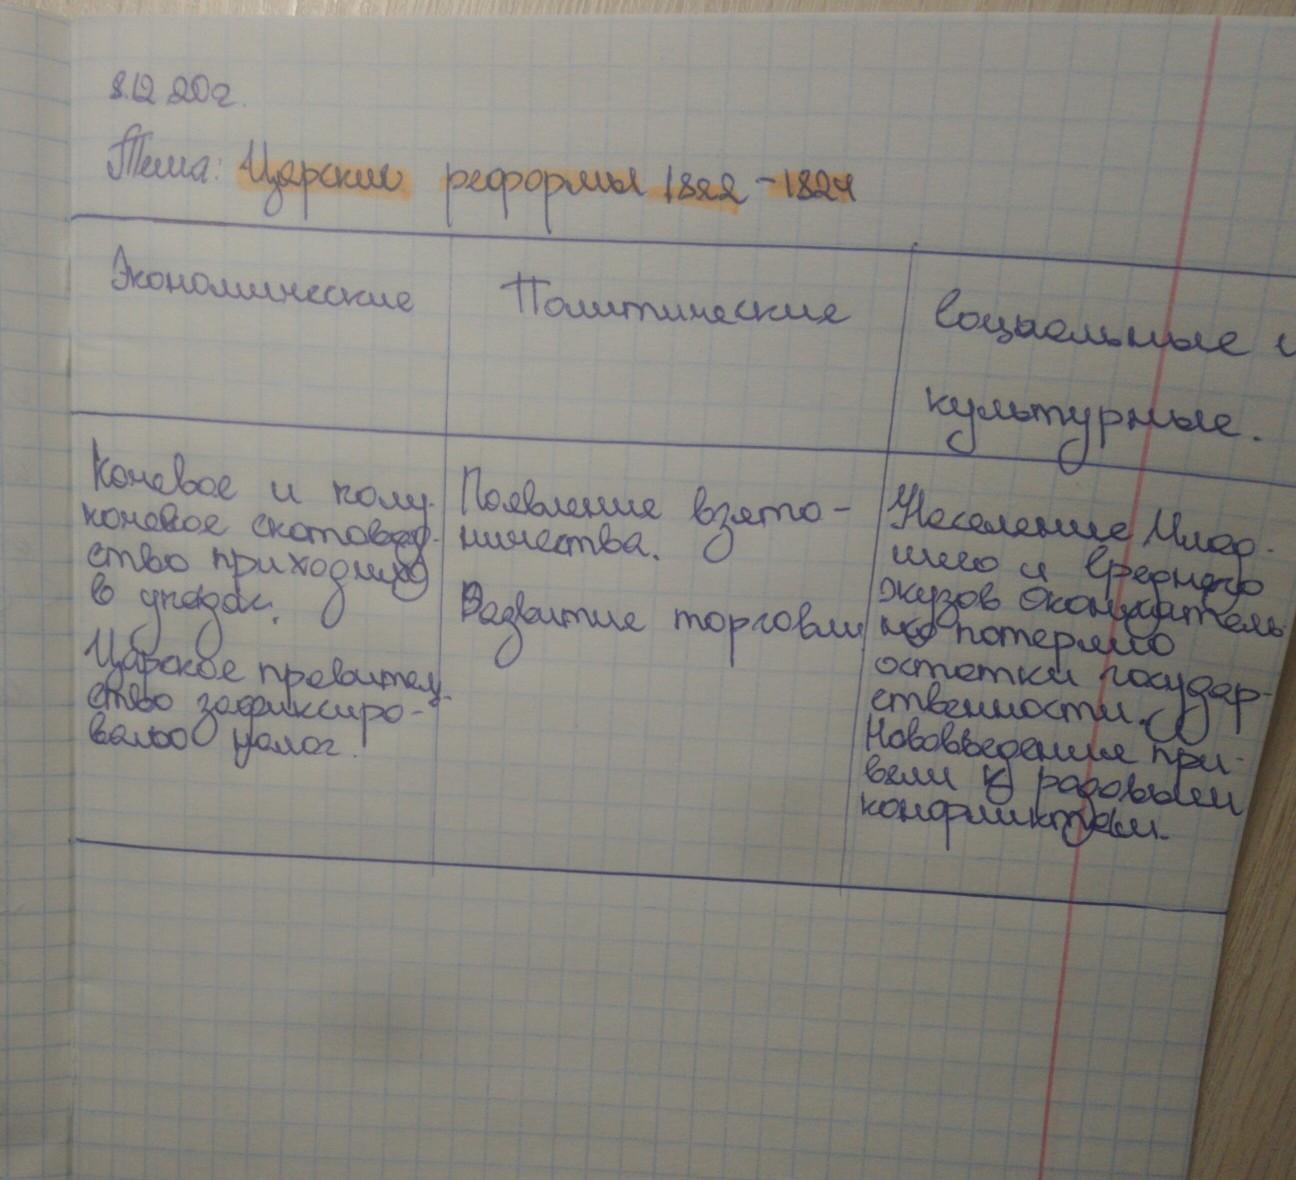 8.12 20г.
Тема: Царские реформы 1822-1824
Экономические
Политические
Социальные и
культурные.
Кочевое и полу-
кочевое скотовод-
ство приходило
в упадок.
Царское правитель-
ство зафиксиро-
вало налог.
Появление взято-
ничества.
Развитие торговли
Население Млад-
шего и Среднего
жузов окончатель-
но потеряло
остатки государ-
ственности.
Нововведения при-
вели к родовым
конфликтам.